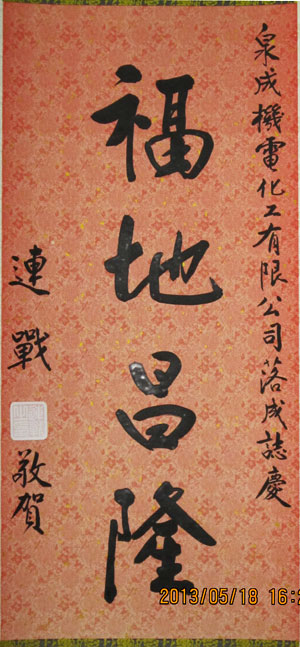 泉成機電化工有限公司落成誌慶
福地昌隆
連戰 敬賀
2013/05/18 16:2